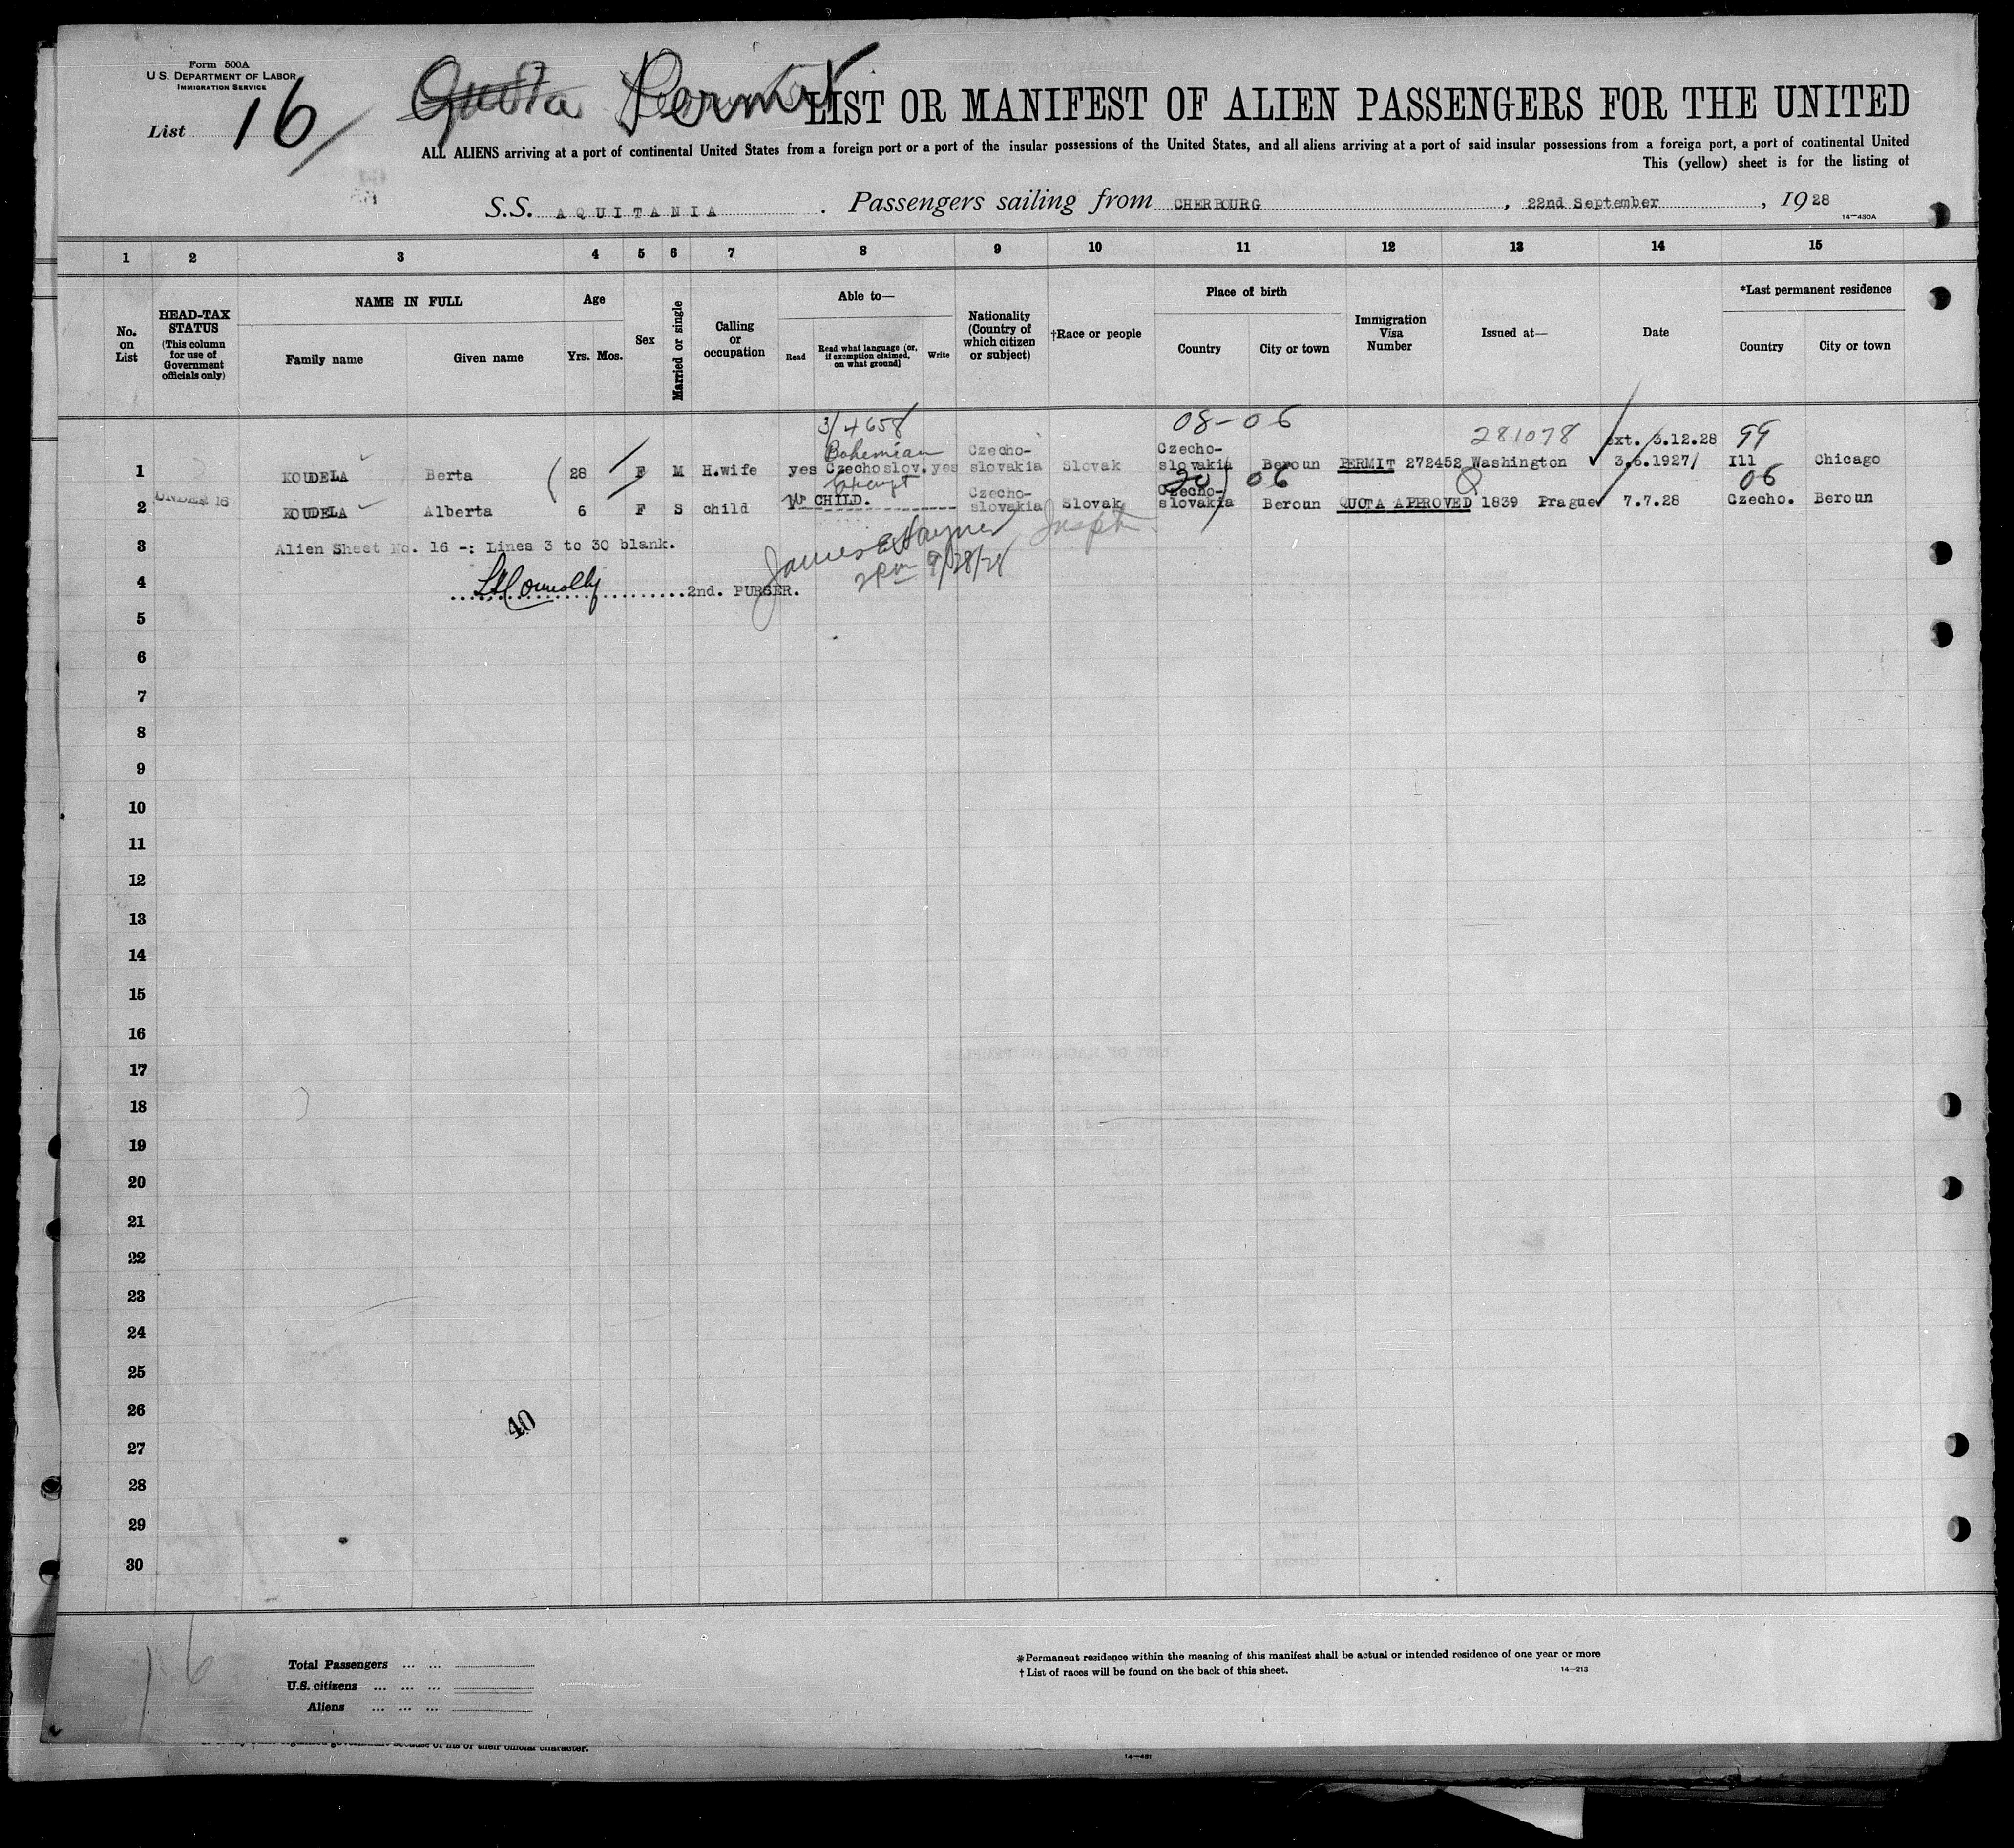 Form 500A
U. S. DEPARTMENT OF LABOR
IMMIGRATION SERVICE
List 16
Quota Permit
LIST OR MANIFEST OF ALIEN PASSENGERS FOR THE UNITED
ALL ALIENS arriving at a port of continental United States from a foreign port or a port of the insular possessions of the United States, and all aliens arriving at a port of said insular possessions from a foreign port, a port of continental United
This (yellow) sheet is for the listing of
S.S. AQUITANIA. Passengers sailing from CHERBOURG, 22nd September, 1928
14—430A
1 2 3 4 5 6 7 8 9 10 11 12 13 14 15
No. on List
HEAD-TAX STATUS (This column for use of Government officials only)
NAME IN FULL
Family name Given name
Age
Yrs. Mos.
Sex
Married or single
Calling or occupation
Able to—
Read Read what language (or, if exemption claimed, on what ground) Write
Nationality (Country of which citizen or subject)
†Race or people
Place of birth
Country City or town
Immigration Visa Number
Issued at—
Date
*Last permanent residence
Country City or town
3/4658 08-06
281078 ext. 3.12.28 99
Bohemian
1 KOUDELA Berta 28 F M H.wife yes Czechoslov. yes Czecho-slovakia Slovak Czecho-slovakia Beroun PERMIT 272452 Washington 3.6.1927 Ill Chicago
20 06 Q 06
UNDER 16
2 KOUDELA Alberta 6 F S child CHILD. Czecho-slovakia Slovak Czecho-slovakia Beroun QUOTA APPROVED 1839 Prague 7.7.28 Czecho. Beroun
3 Alien Sheet No. 16 -: Lines 3 to 30 blank.
Inspt.
2 Pm 9/28/28
4 2nd. PURSER.
5
6
7
8
9
10
11
12
13
14
15
16
17
18
19
20
21
22
23
24
25
26
40
27
28
29
30
16
Total Passengers ... ...
U.S. citizens ... ... ...
Aliens ... ... ...
*Permanent residence within the meaning of this manifest shall be actual or intended residence of one year or more
†List of races will be found on the back of this sheet.
14—213
14—431